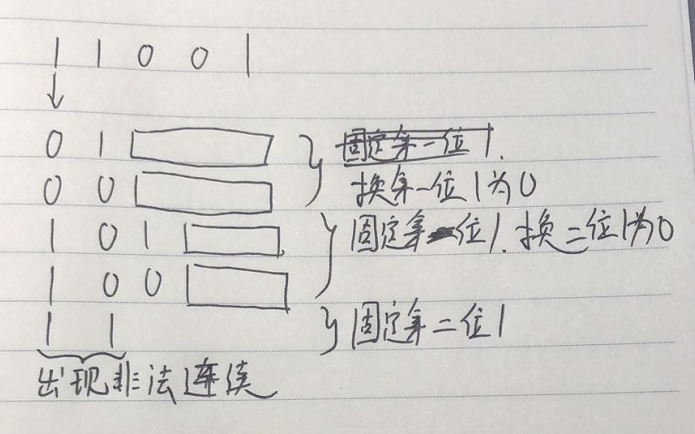 1 1 0 0 1
0 1
固定第一位1.
0 0
换第一位1为0
1 0 1
固定第一位1.换二位1为0
1 0 0
1 1
固定第二位1
出现非法连续